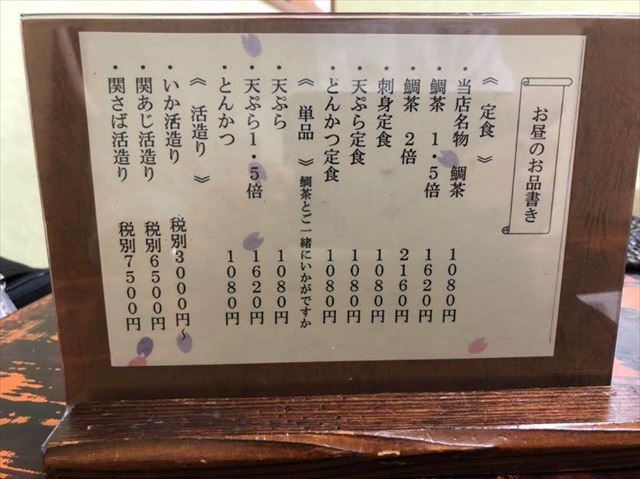 お昼のお品書き
《 定食 》
・当店名物 鯛茶 1080円
・鯛茶 1・5倍 1620円
・鯛茶 2倍 2160円
・刺身定食 1080円
・天ぷら定食 1080円
・とんかつ定食 1080円
《 単品 》鯛茶とご一緒にいかがですか
・天ぷら 1080円
・天ぷら1・5倍 1620円
・とんかつ 1080円
《 活造り 》
・いか活造り 税別3000円~
・関あじ活造り 税別6500円
・関さば活造り 税別7500円